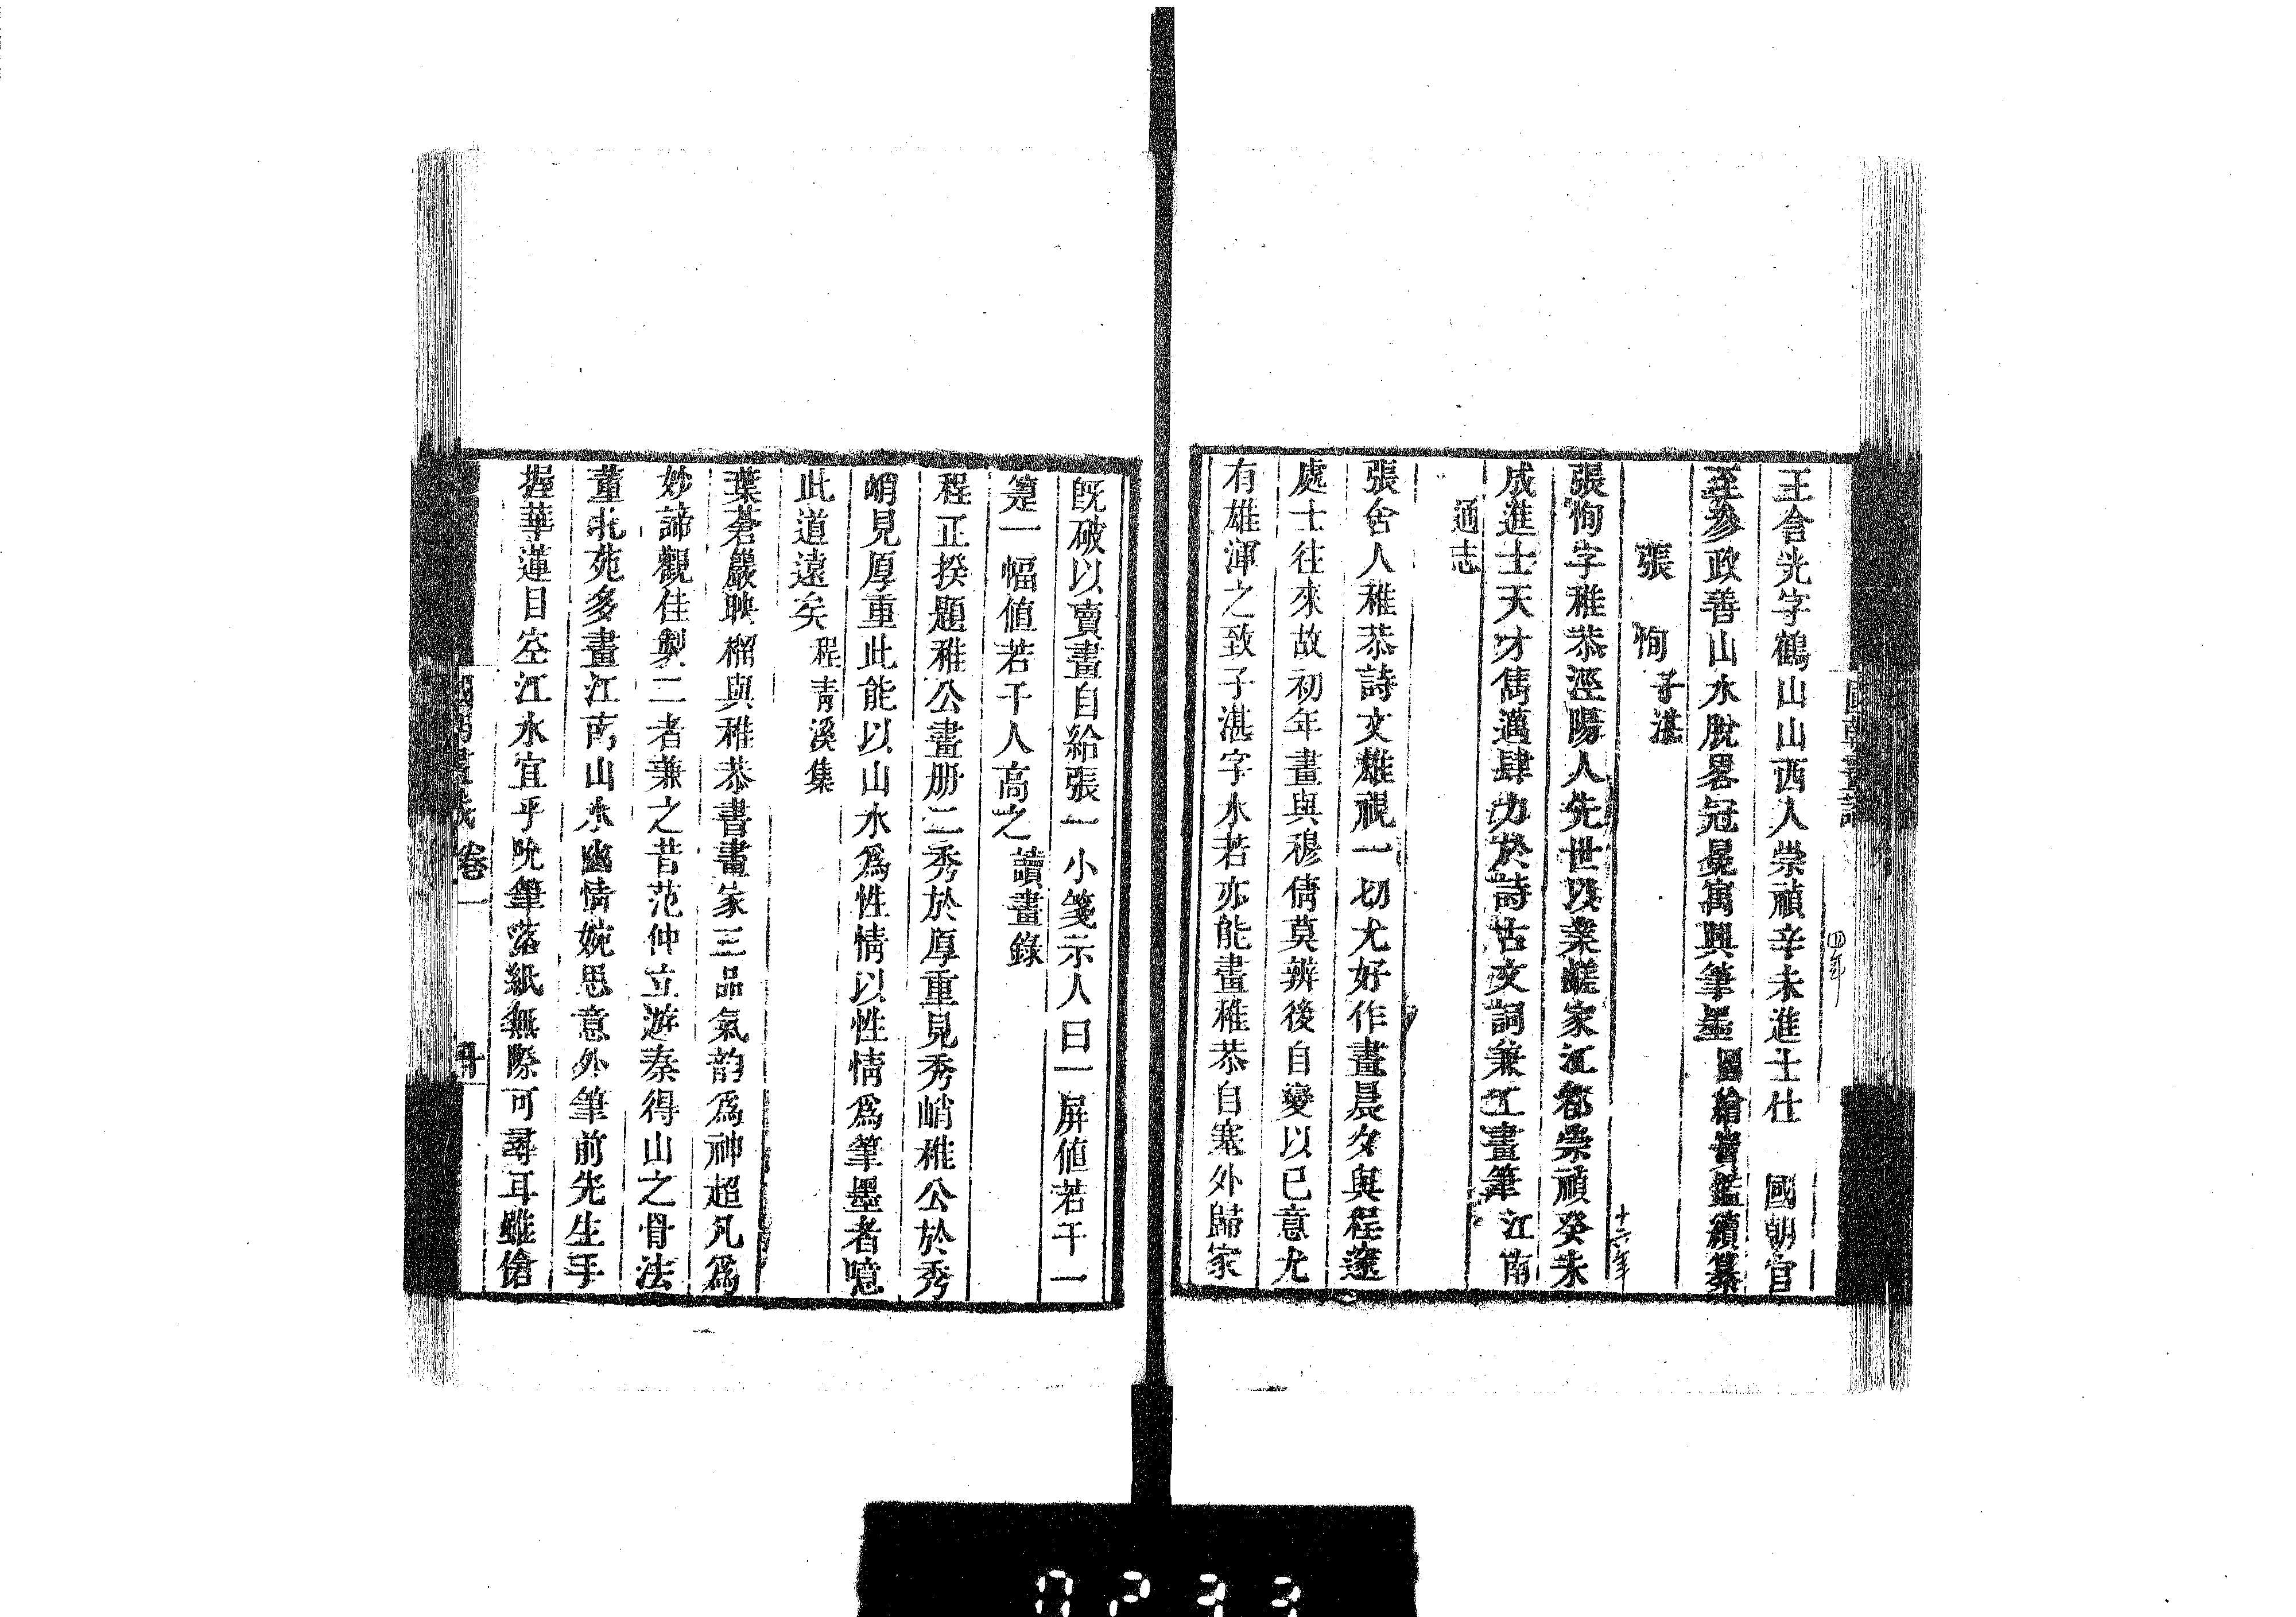 王含光字鶴山山西人崇禎辛未進士仕　國朝官
至參政善山水脫畧冠冕寓興筆墨圖繪寶鑑續纂
張　恂子湛
張恂字稚恭涇陽人先世以業鹺家江都崇禎癸未
成進士天才儁邁肆力於詩古文詞兼工畫筆江南
通志
張舍人稚恭詩文雄視一切尤好作畫晨夕與程邃
處士往來故初年畫與穆倩莫辨後自變以己意尤
有雄渾之致子湛字水若亦能畫稚恭自塞外歸家
四年
十六年
既破以賣畫自給張一小箋示人曰一屏值若干一
箑一幅值若干人高之讀畫錄
程正揆題稚公畫册云秀於厚重見秀峭稚公於秀
峭見厚重此能以山水爲性情以性情爲筆墨者噫
此道遠矣程青溪集
葉蒼巖映榴與稚恭書畫家三品氣韵爲神超凡爲
妙諦觀佳製二者兼之昔范仲立遊秦得山之骨法
董北苑多畫江南山水幽情婉思意外筆前先生手
握華蓮目空江水宜乎吮筆落紙無際可尋耳雖傖
國朝畫識　卷一